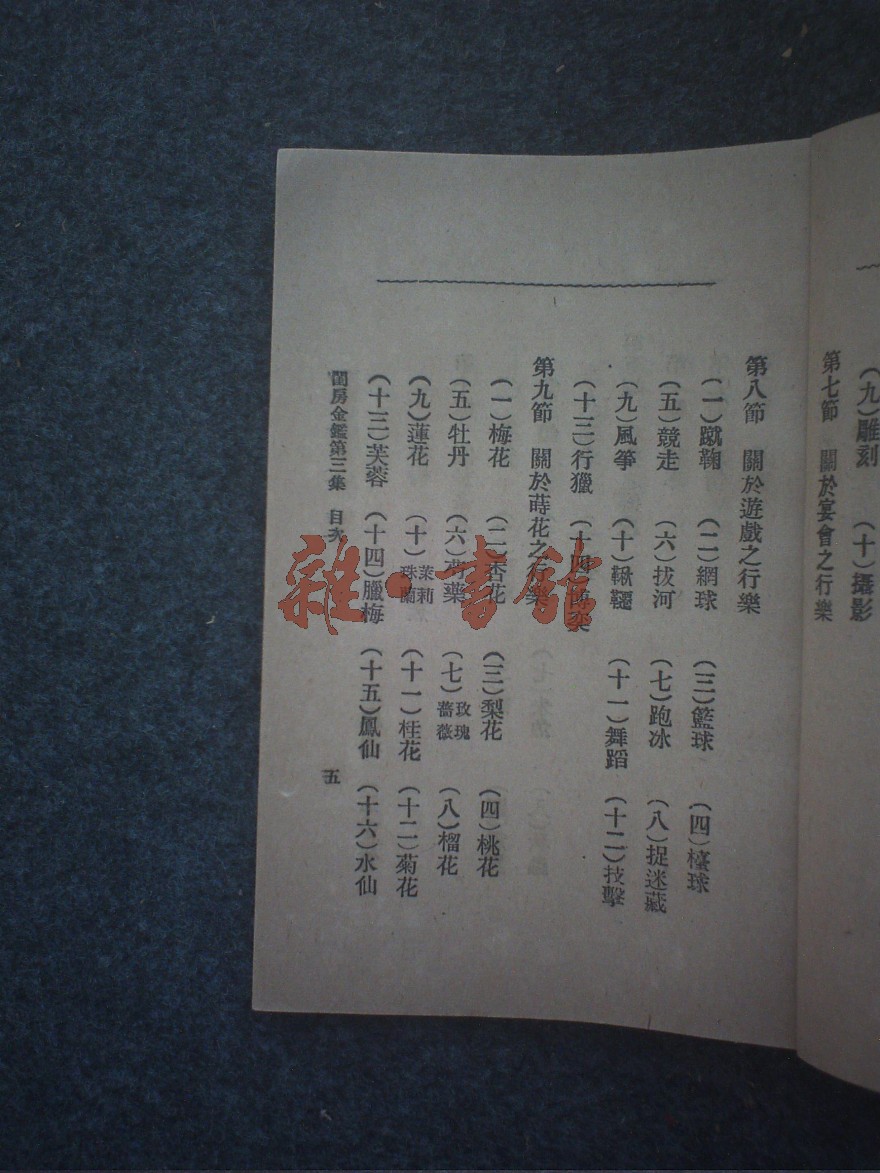 （九）雕刻　（十）攝影
第七節　關於宴會之行樂
第八節　關於遊戲之行樂
（一）蹴鞠　（二）網球　（三）籃球　（四）檯球
（五）競走　（六）拔河　（七）跑冰　（八）捉迷藏
（九）風箏　（十）鞦韆　（十一）舞蹈　（十二）技擊
（十三）行獵　（十四）博奕
第九節　關於蒔花之行樂
（一）梅花　（二）杏花　（三）梨花　（四）桃花
（五）牡丹　（六）芍藥　（七）玫瑰薔薇　（八）榴花
（九）蓮花　（十）茉莉珠蘭　（十一）桂花　（十二）菊花
（十三）芙蓉　（十四）臘梅　（十五）鳳仙　（十六）水仙
閨房金鑑第三集　目次　五
雜·書館